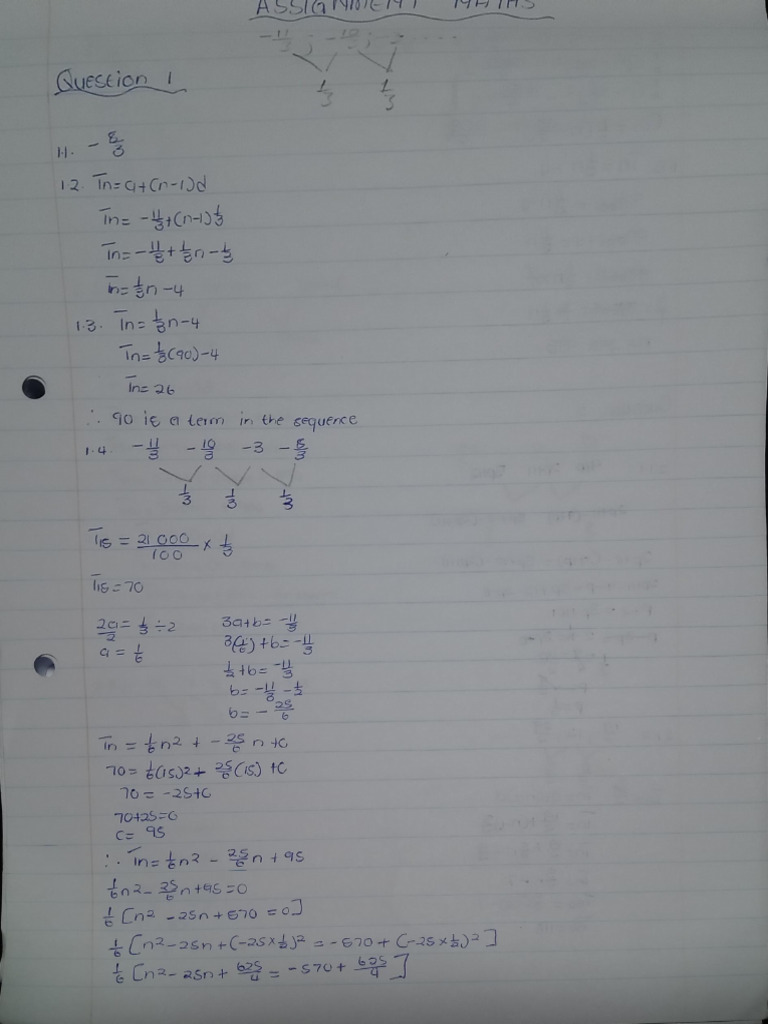 ASSIGNMENT MATHS
-11/3 ; -10/3 ; -3 ....
1/3 1/3
Question 1
1.1. -8/3
1.2. Tn=a+(n-1)d
Tn= -11/3+(n-1)1/3
Tn= -11/3+1/3n-1/3
Tn=1/3n-4
1.3. Tn=1/3n-4
Tn=1/3(90)-4
Tn=26
∴ 90 is a term in the sequence
1.4. -11/3 -10/3 -3 -8/3
1/3 1/3 1/3
T15 = 21 000/100 × 1/3
T15=70
2a/2=1/3÷2 3a+b= -11/3
a= 1/6 3(1/6)+b= -11/3
1/2+b= -11/3
b= -11/3 -1/2
b= - 25/6
Tn = 1/6n² + -25/6 n +c
70= 1/6(15)²+ 25/6(15) +c
70 = -25+c
70+25=c
c= 95
∴ Tn=1/6n² - 25/6n +95
1/6n²- 25/6n+95=0
1/6[n² -25n+570 =0]
1/6[n²-25n+(-25×1/2)² = -570+(-25×1/2)²]
1/6[n²-25n+ 625/4 = -570+ 625/4]